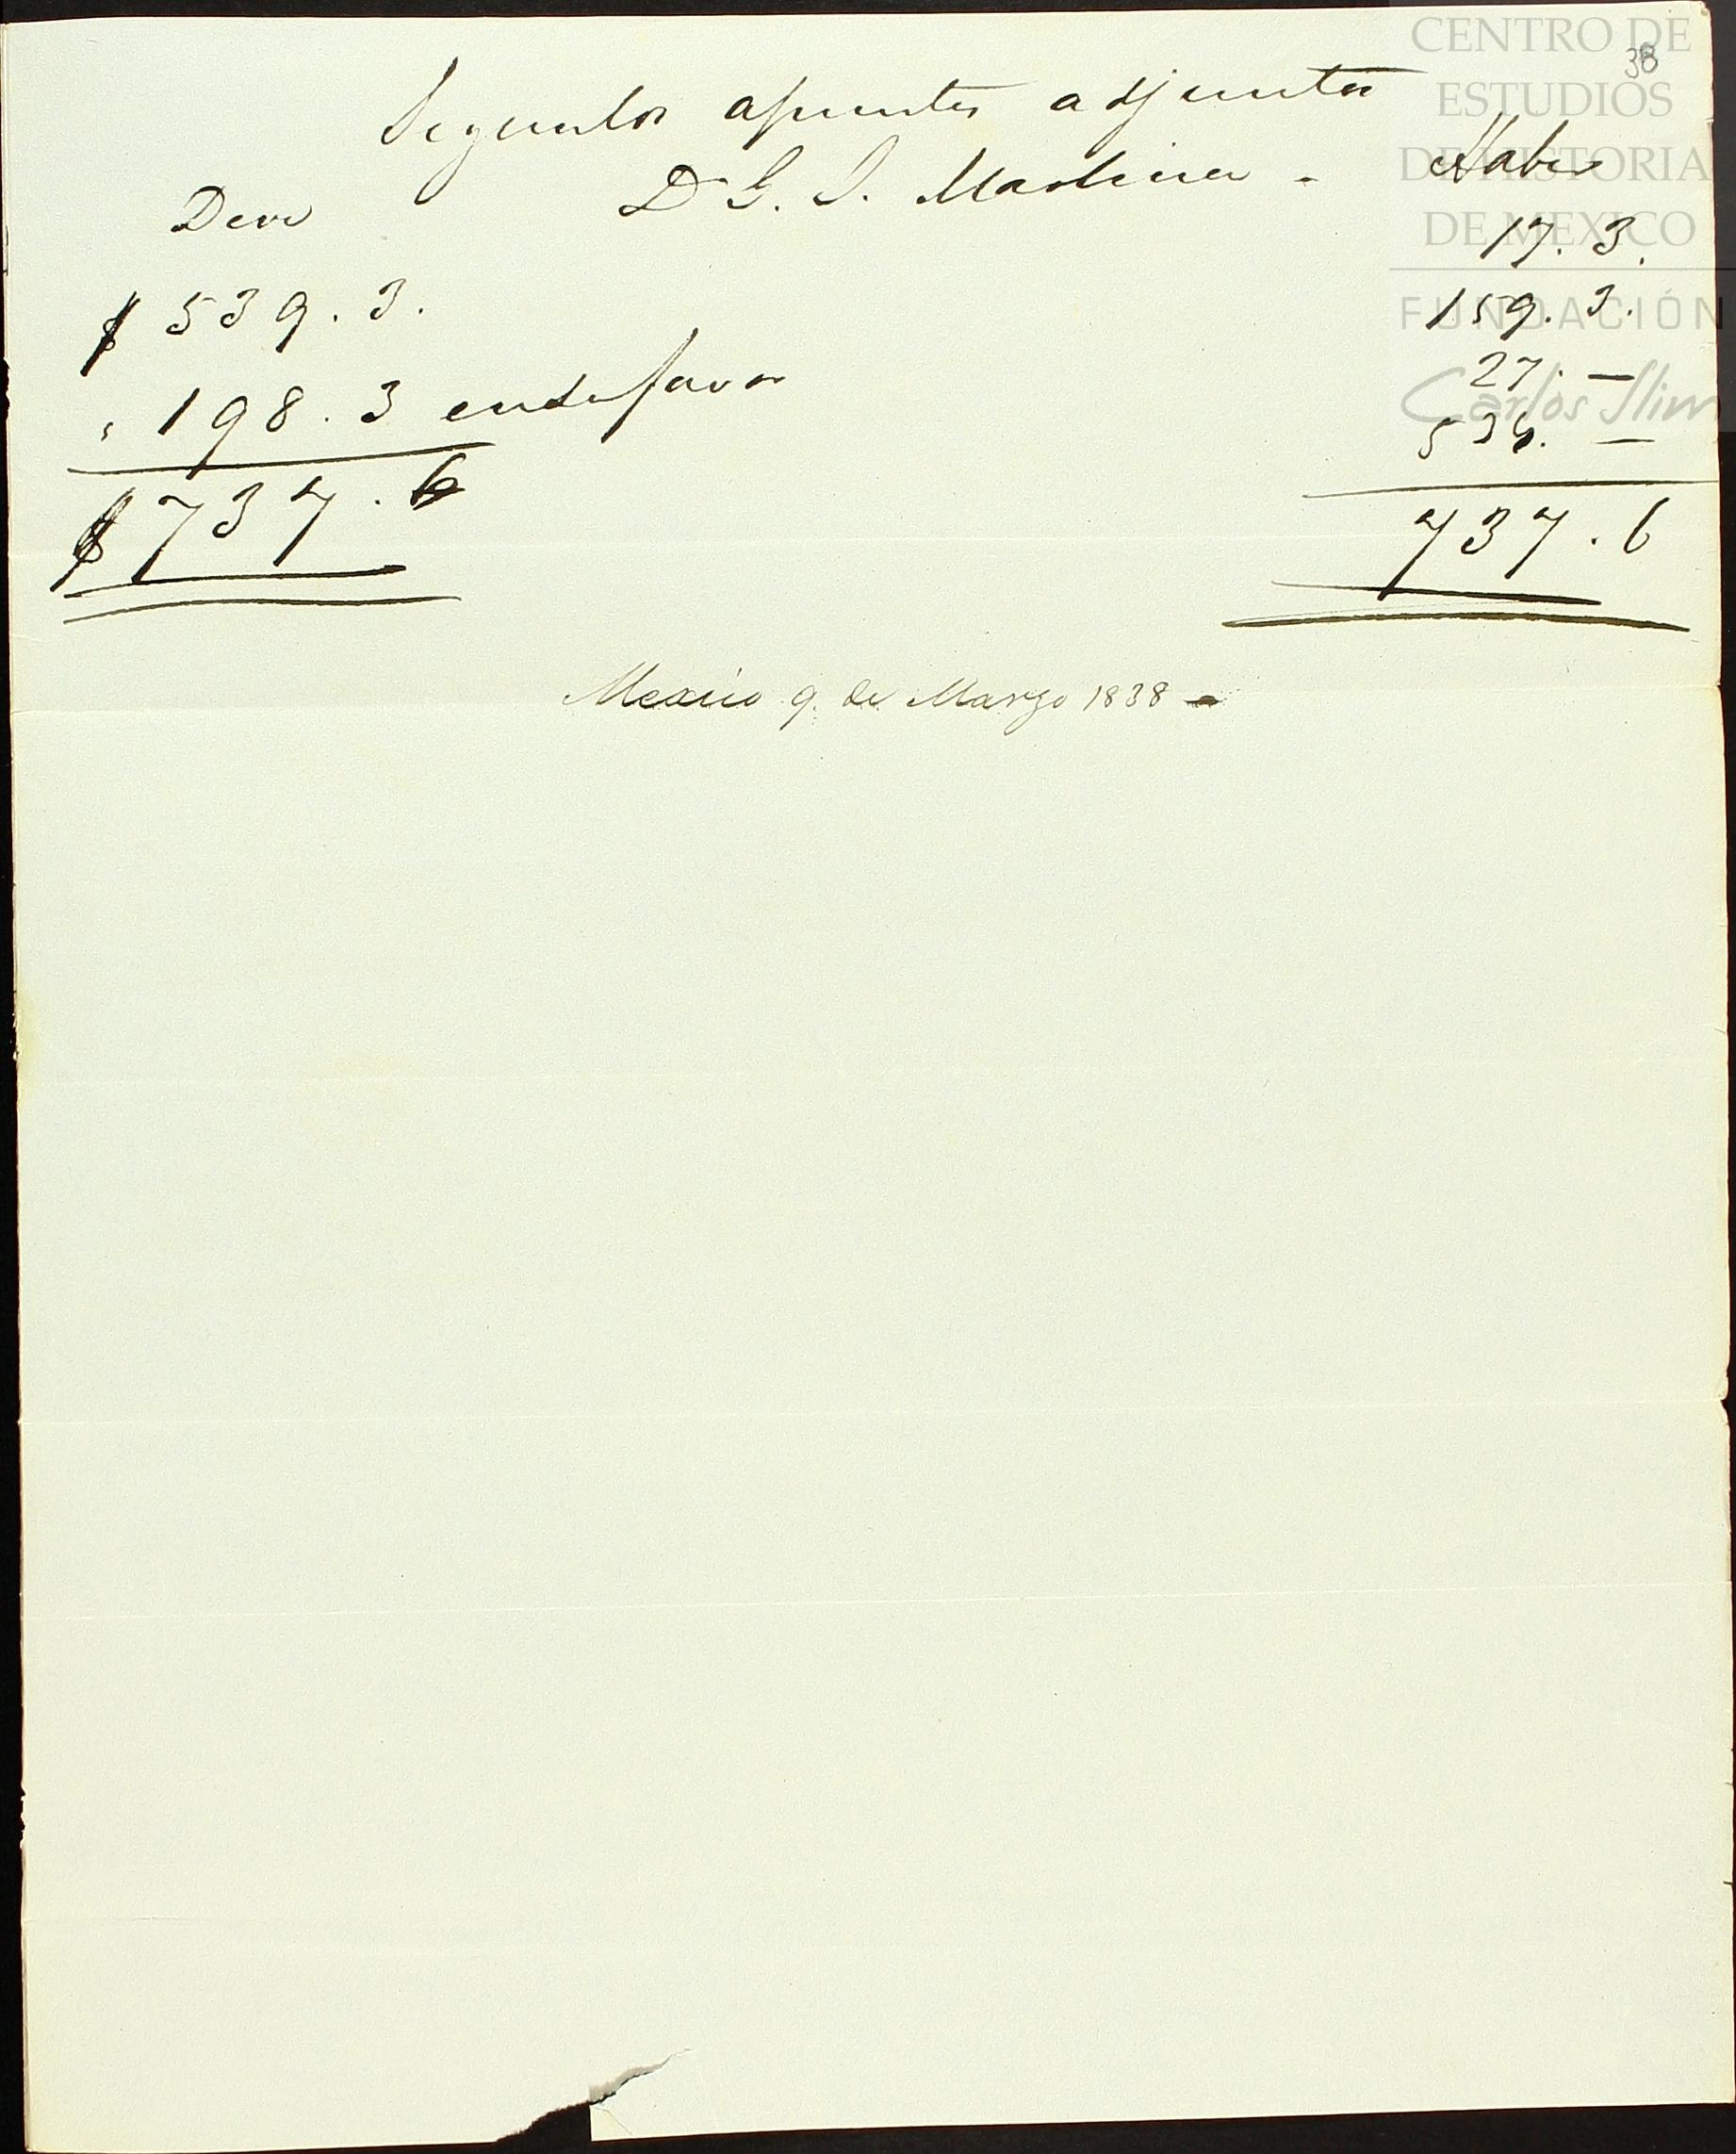 CENTRO DE
38
ESTUDIOS
DE HISTORIA
DE MEXICO
FUNDACIÓN
Carlos Slim
Segun los apuntes adjuntos
Deve D G. J. Haber
17. 3.
$ 539. 3. 159. 3.
27. —
" 198. 3 en su favor 534. —
$ 737. 6 737. 6
Mexico 9. de Marzo 1838 -